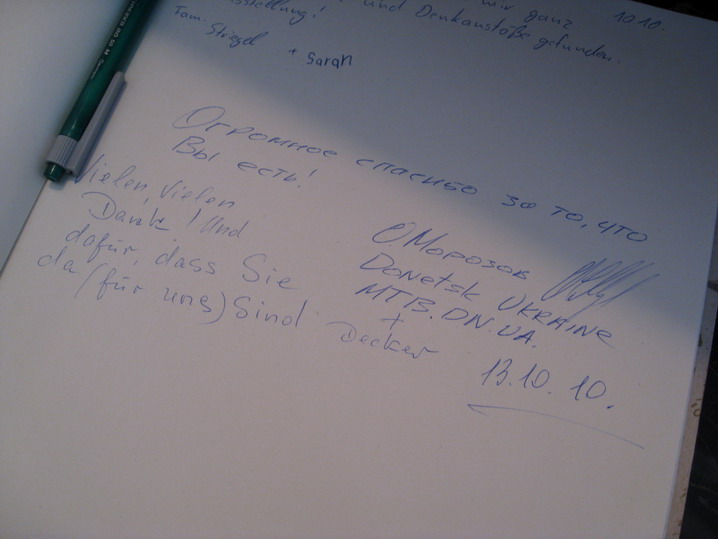 mir ganz 10.10.
und Denkanstöße gefunden.
Fam. Striegel + Sarah
Огромное спасибо за то, что
Вы есть!
Vielen, vielen
Dank! Und
dafür, dass Sie
da (für uns) Sind
О Морозов
Donetsk UKRAINE
MTB.DN.UA.
+
Decker
13.10.10.